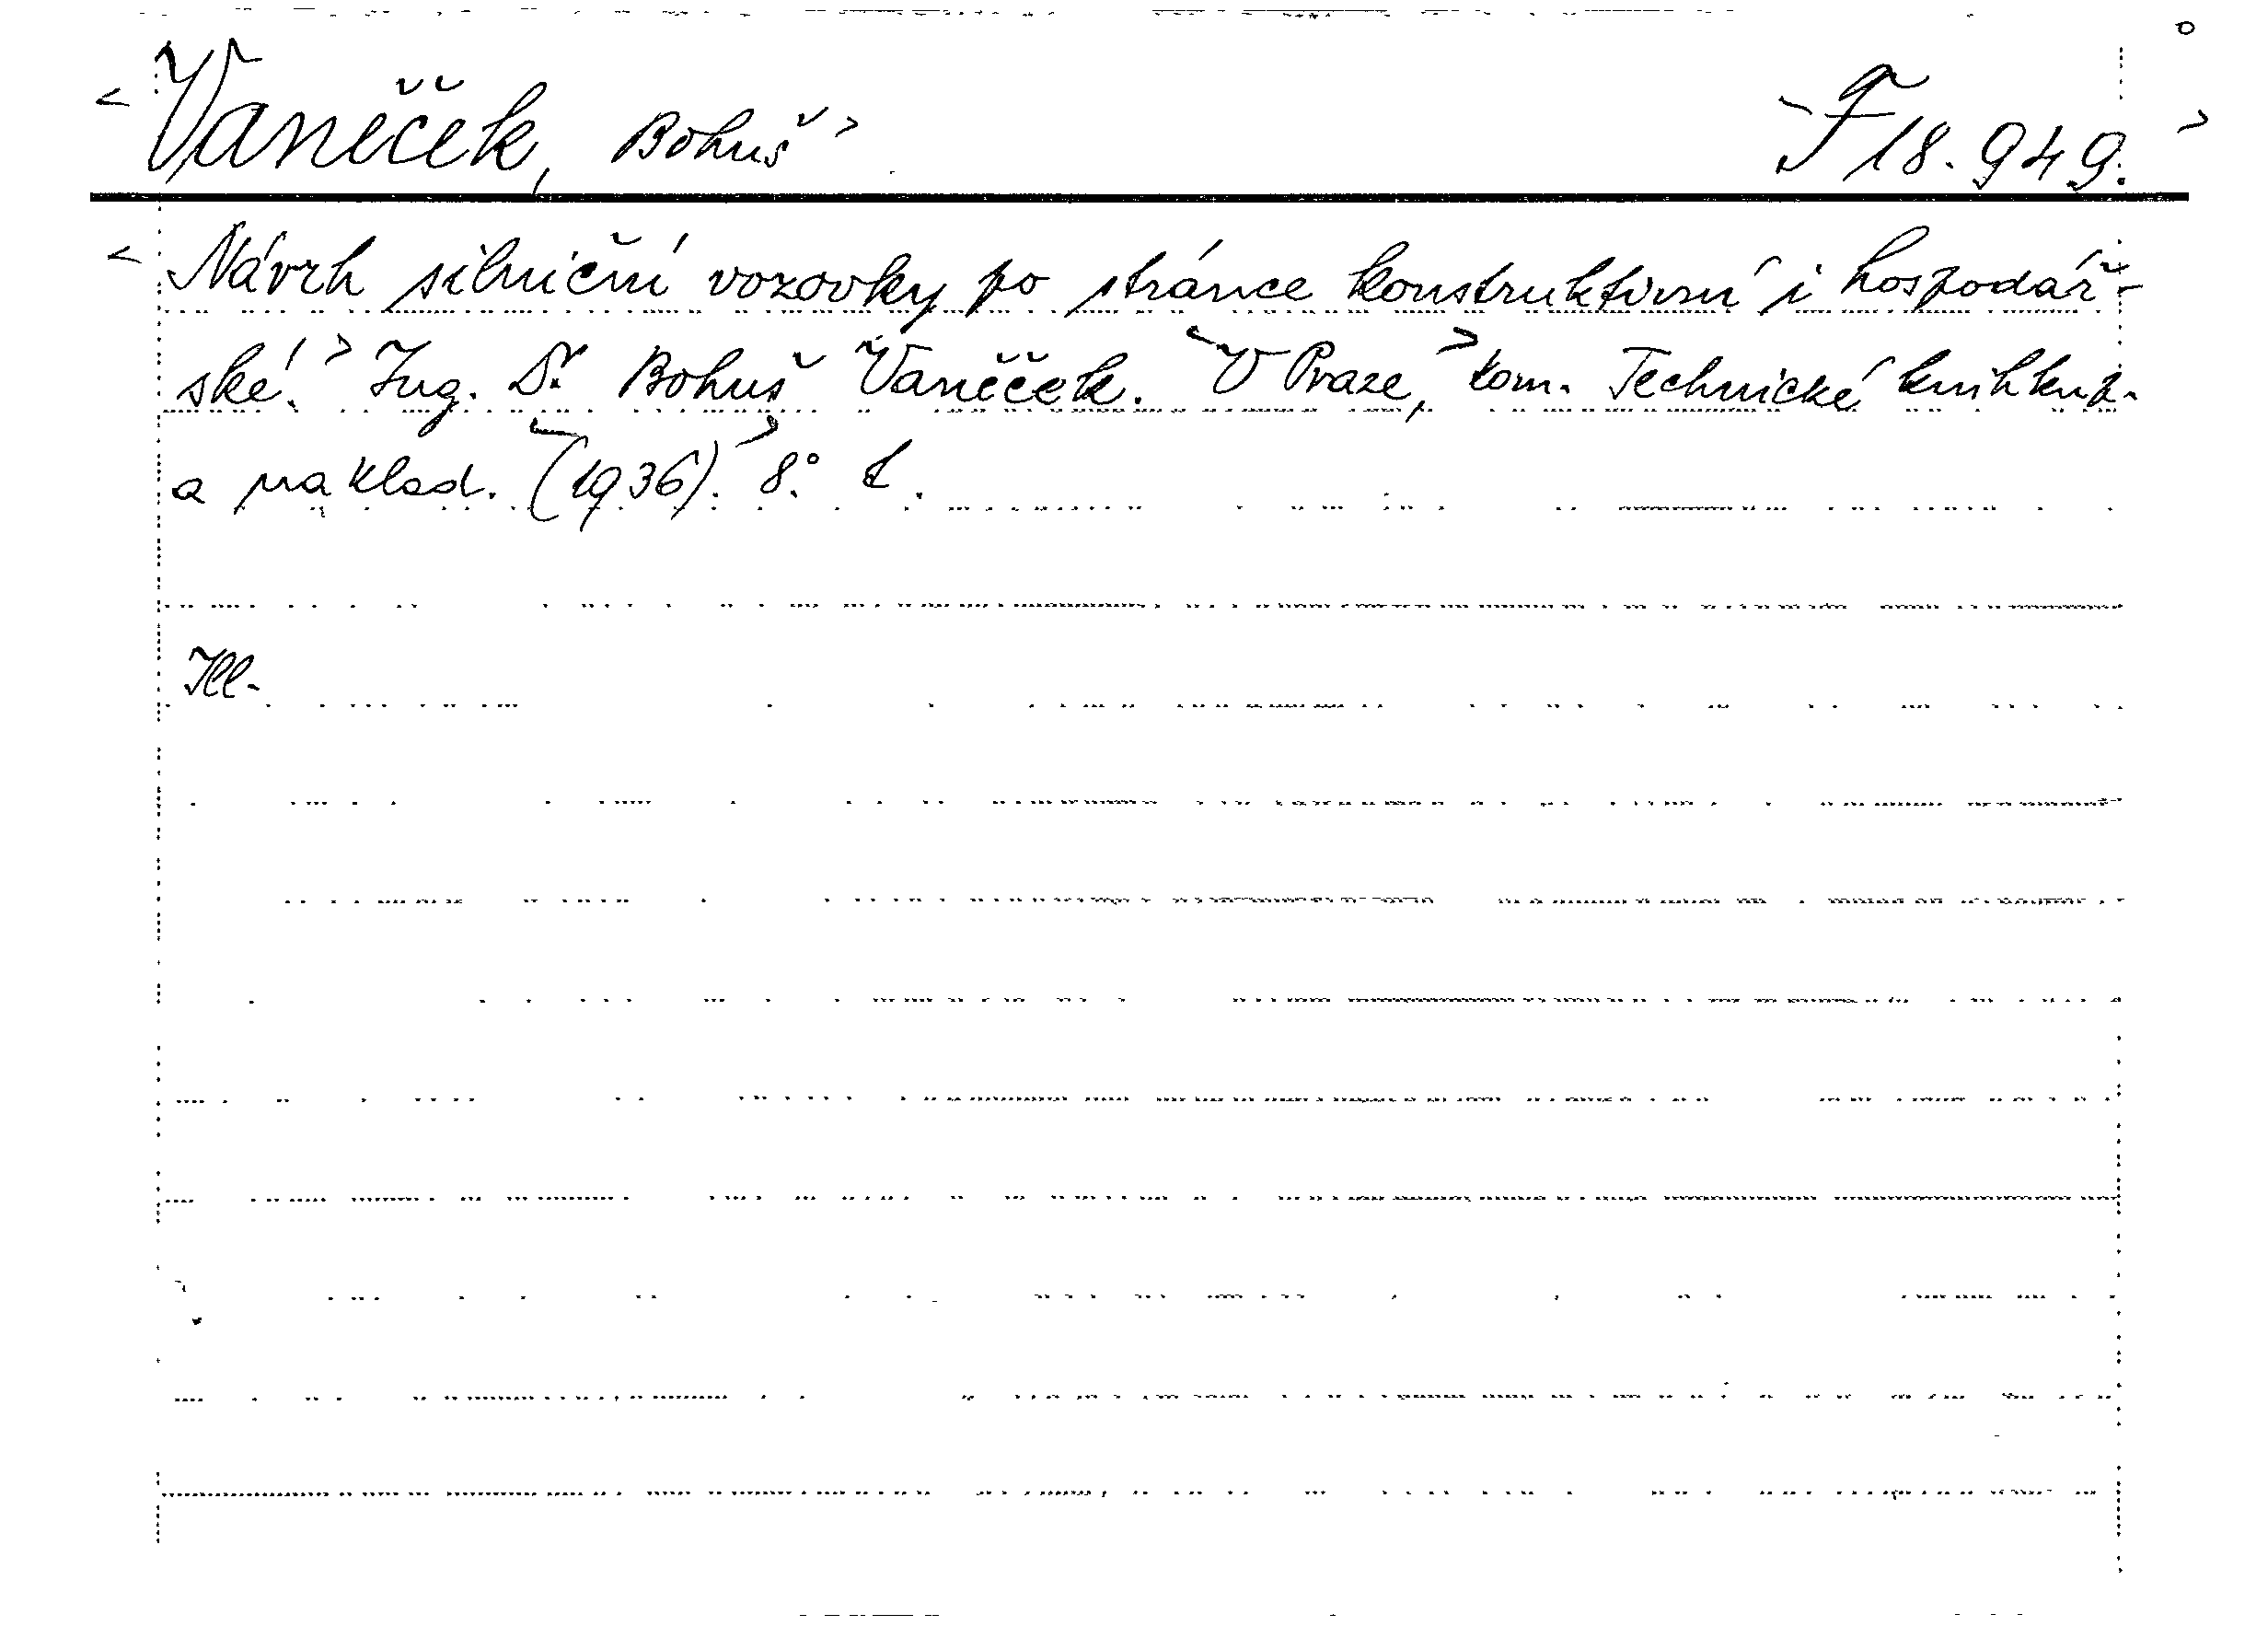 <Vaněček, Bohuš> <F 18.949.>
<Návrh silniční vozovky po stránce konstruktivní i hospodář-
ské.> Ing. Dr. Bohuš Vaněček. <V Praze,> kom. Technické knihkup.
a naklad. <(1936).> 8°.
Ill.